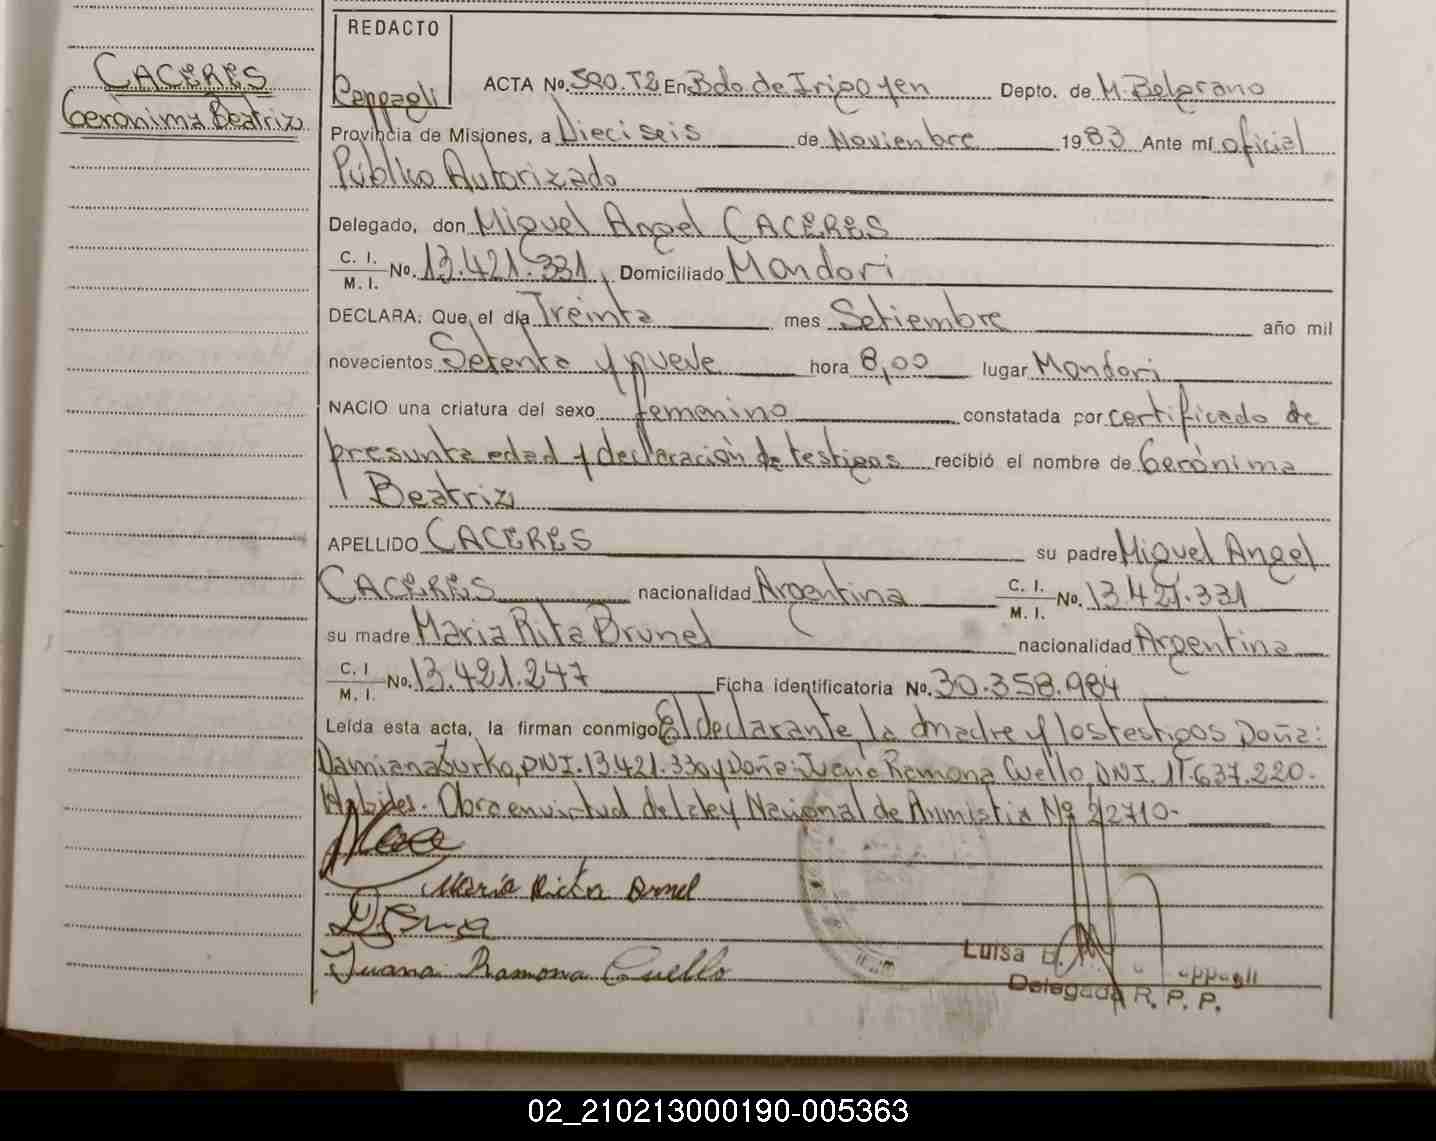 CACERES
Gerónima Beatriz
REDACTO
Ceppagli
ACTA No. 590.T2 En Bdo de Irigoyen Depto. de M. Belgrano
Provincia de Misiones, a Dieciseis de Noviembre 1983 Ante mí oficial
Público Autorizado
Delegado, don Miguel Angel CACERES
C. I.
M. I. No. 13.421.331, Domiciliado Mondori
DECLARA: Que el día Treinta mes Setiembre año mil
novecientos Setenta y nueve hora 8,00 lugar Mondori
NACIO una criatura del sexo femenino constatada por certificado de
presunta edad y declaración de testigos recibió el nombre de Gerónima
Beatriz
APELLIDO CACERES su padre Miguel Angel
CACERES nacionalidad Argentina C. I. M. I. No. 13.421.331
su madre Maria Rita Brunel nacionalidad Argentina
C. I M. I. No. 13.421.247 Ficha identificatoria No. 30.358.984
Leída esta acta, la firman conmigo El declarante, la madre y los testigos Doña:
Damiana Zurko, DNI. 13.421.330 y Doña: Juana Ramona Cuello, DNI. 11.637.220.
Habides. Obra en virtud de la ley Nacional de Anmistia Nº 22710-
Maria Rita Brunel
Juana Ramona Cuello
Luisa B. appagli
Delegada R. P. P.
02_210213000190-005363